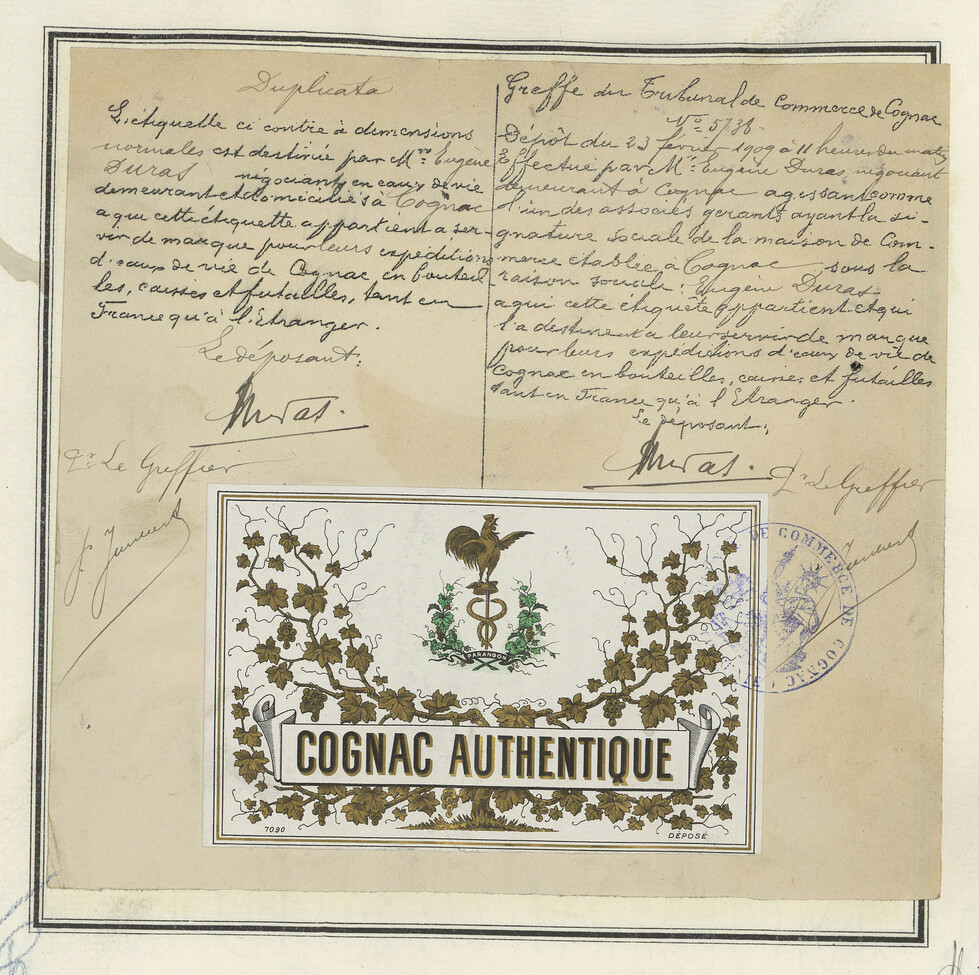 Duplicata
L'étiquette ci contre à dimensions
normales est destinée par Mrs Eugène
Duras négociants en eaux de vie
demeurant et domiciliés à Cognac
a qui cette étiquette appartient a ser-
vir de marque pour leurs expéditions
d'eaux de vie de Cognac en bouteil
les, caisses et futailles, tant en
France qu'à l'Etranger.
Le déposant:
Duras.
Pr Le Greffier
Greffe du Tribunal de Commerce de Cognac
No 5738
Dépôt du 23 février 1909 à 11 heures du matin
Effectué par Mr Eugène Duras, négociant
demeurant à Cognac agissant comme
l'un des associés gerants ayant la si-
gnature sociale de la maison de Com-
merce établie à Cognac, sous la
raison sociale: Eugène Duras
a qui cette étiquête appartient et qui
l'a destinent a leur servir de marque
pour leurs expéditions d'eaux de vie de
Cognac en bouteilles, caisses et futailles
tant en France qu'à l'Etranger.
Le déposant:
Duras.
Pr Le Greffier
DE COMMERCE DE COGNAC
PARANGON
COGNAC AUTHENTIQUE
7090
DÉPOSÉ